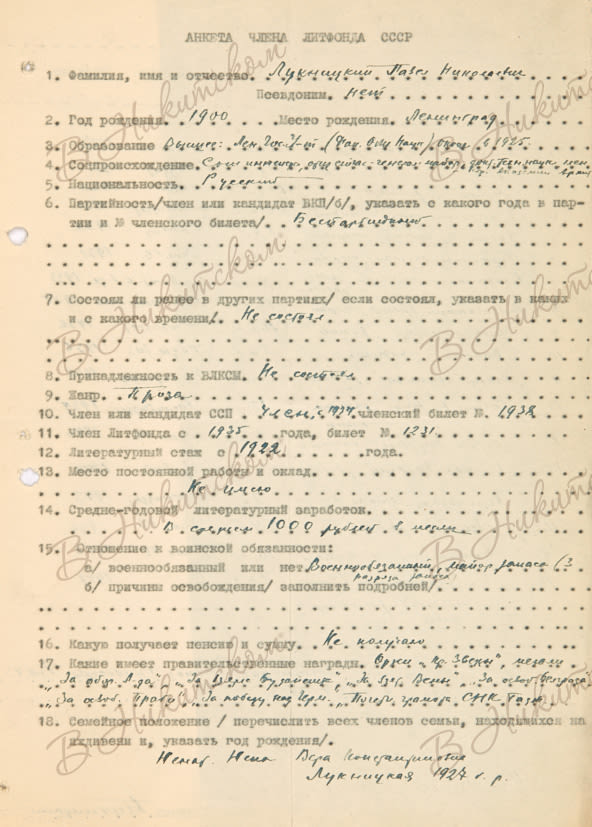 АНКЕТА ЧЛЕНА ЛИТФОНДА СССР
1. Фамилия, имя и отчество. Лукницкий Павел Николаевич
Псевдоним. нет
2. Год рождения. 1900 Место рождения. Ленинград
3. Образование Высшее: Лен. Гос. Ун-т (Фак. Общ. Наук) оконч. в 1925.
4. Соцпроисхождение. Сын
5. Национальность. Русский
6. Партийность/член или кандидат ВКП/б/, указать с какого года в пар-
тии и № членского билета/. Беспартийный
7. Состоял ли ранее в других партиях/ если состоял, указать в каких
и с какого времени/. Не состоял
8. Принадлежность к ВЛКСМ. Не состоял
9. Жанр. Проза
10. Член или кандидат ССП. Член с 1934 членский билет №. 1938
11. Член Литфонда с 1935 года, билет № 1231
12. Литературный стаж с 1922 года.
13. Место постоянной работы и оклад.
Не имею
14. Средне-годовой литературный заработок.
В среднем 1000 рублей в месяц
15. Отношение к воинской обязанности:
а/ военнообязанный или нет Военнообязанный, майор запаса (3
разряда запаса)
б/ причины освобождения/ заполнить подробней/
16. Какую получает пенсию и сумму. Не получаю
17. Какие имеет правительственные награды. Орден "Кр. Звезды", медали
"За обор. Л-да", "За взятие Будапешта", "За взят. Вены", "За освоб. Белграда",
"За освоб. Праги", "За победу над Герм.", Почетн. грамота СНК Тадж.
18. Семейное положение / перечислить всех членов семьи, находящихся на
иждивени и, указать год рождения/.
Женат. Жена Вера Константиновна
Лукницкая 1927 г. р.
В. Никитском
В. Никитском
В. Никитском
В. Никитском
В. Никитском
В. Никитском